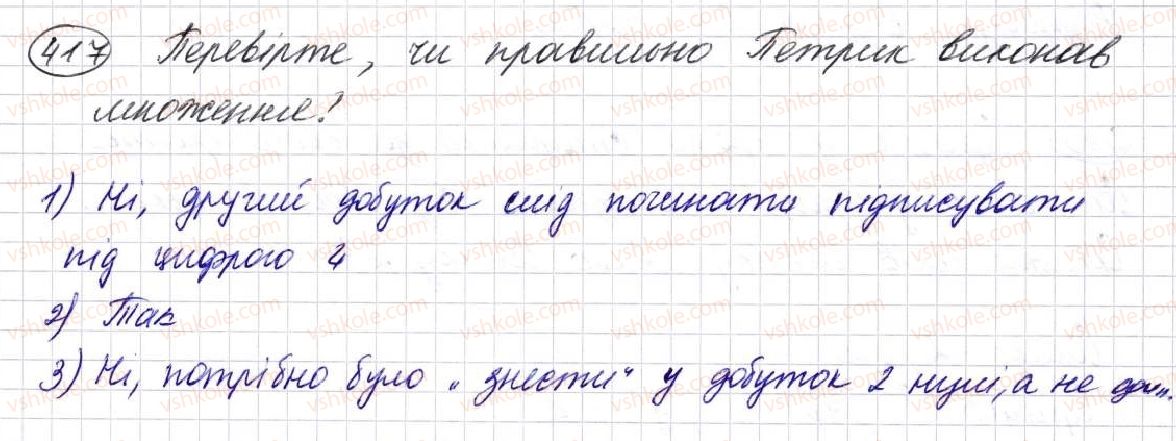 417 Перевірте, чи правильно Петрик виконав
множення?
1) Ні, другий добуток слід починати підписувати
під цифрою 4
2) Так
3) Ні, потрібно було „знести" у добуток 2 нулі, а не